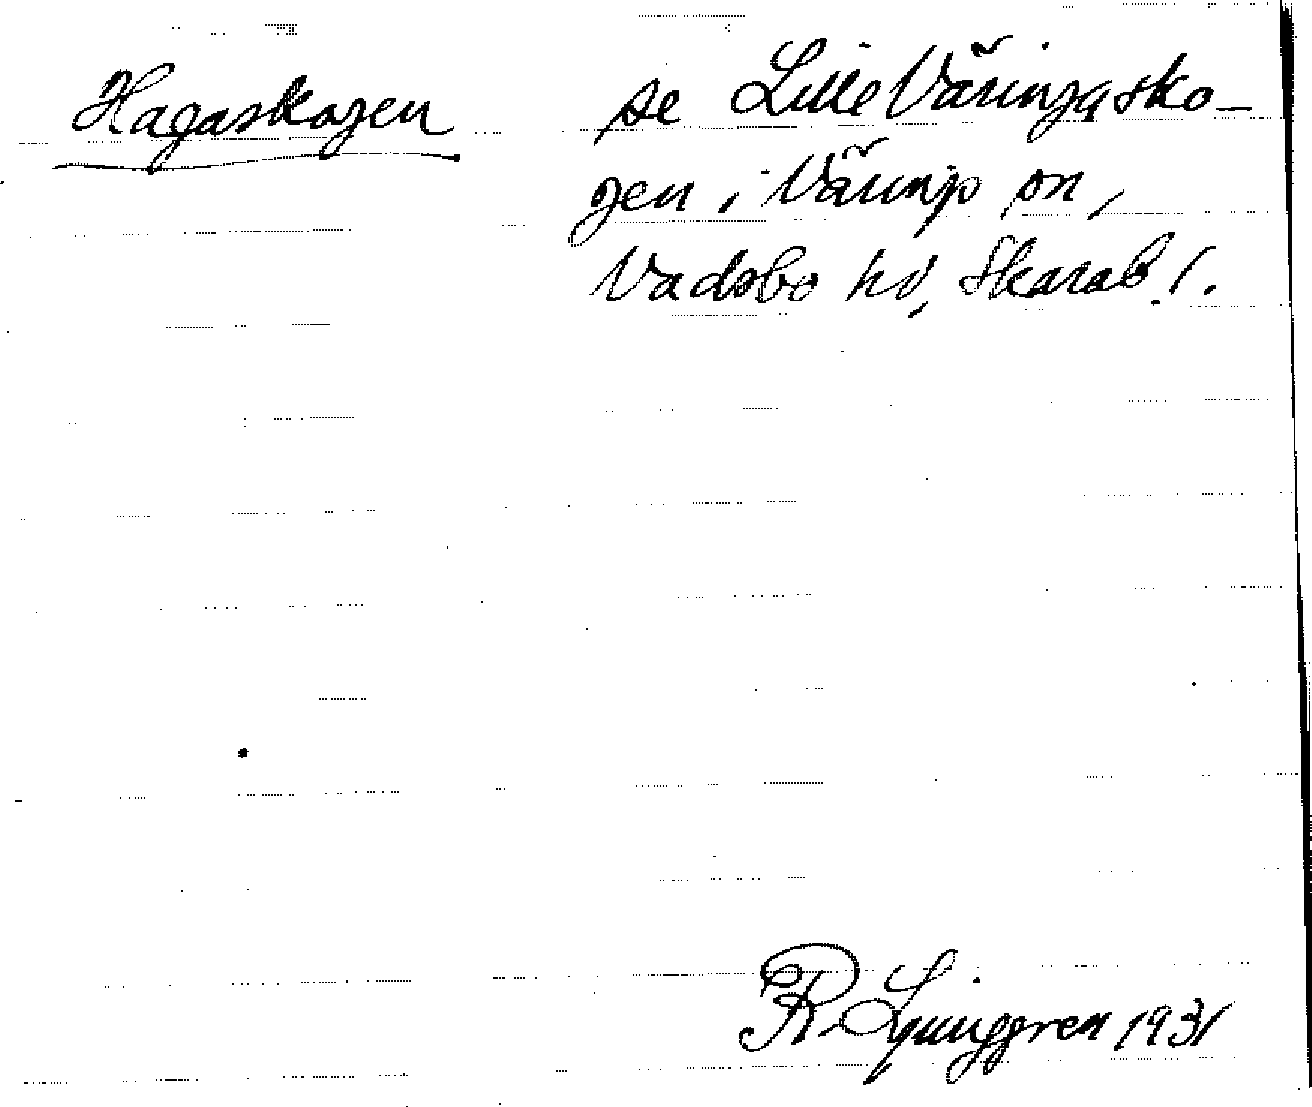 Hagaskogen
se Lille Väringasko-
gen i Värings sn,
Vadsbo hd, Skarab. l.
R. Ljunggren 1931